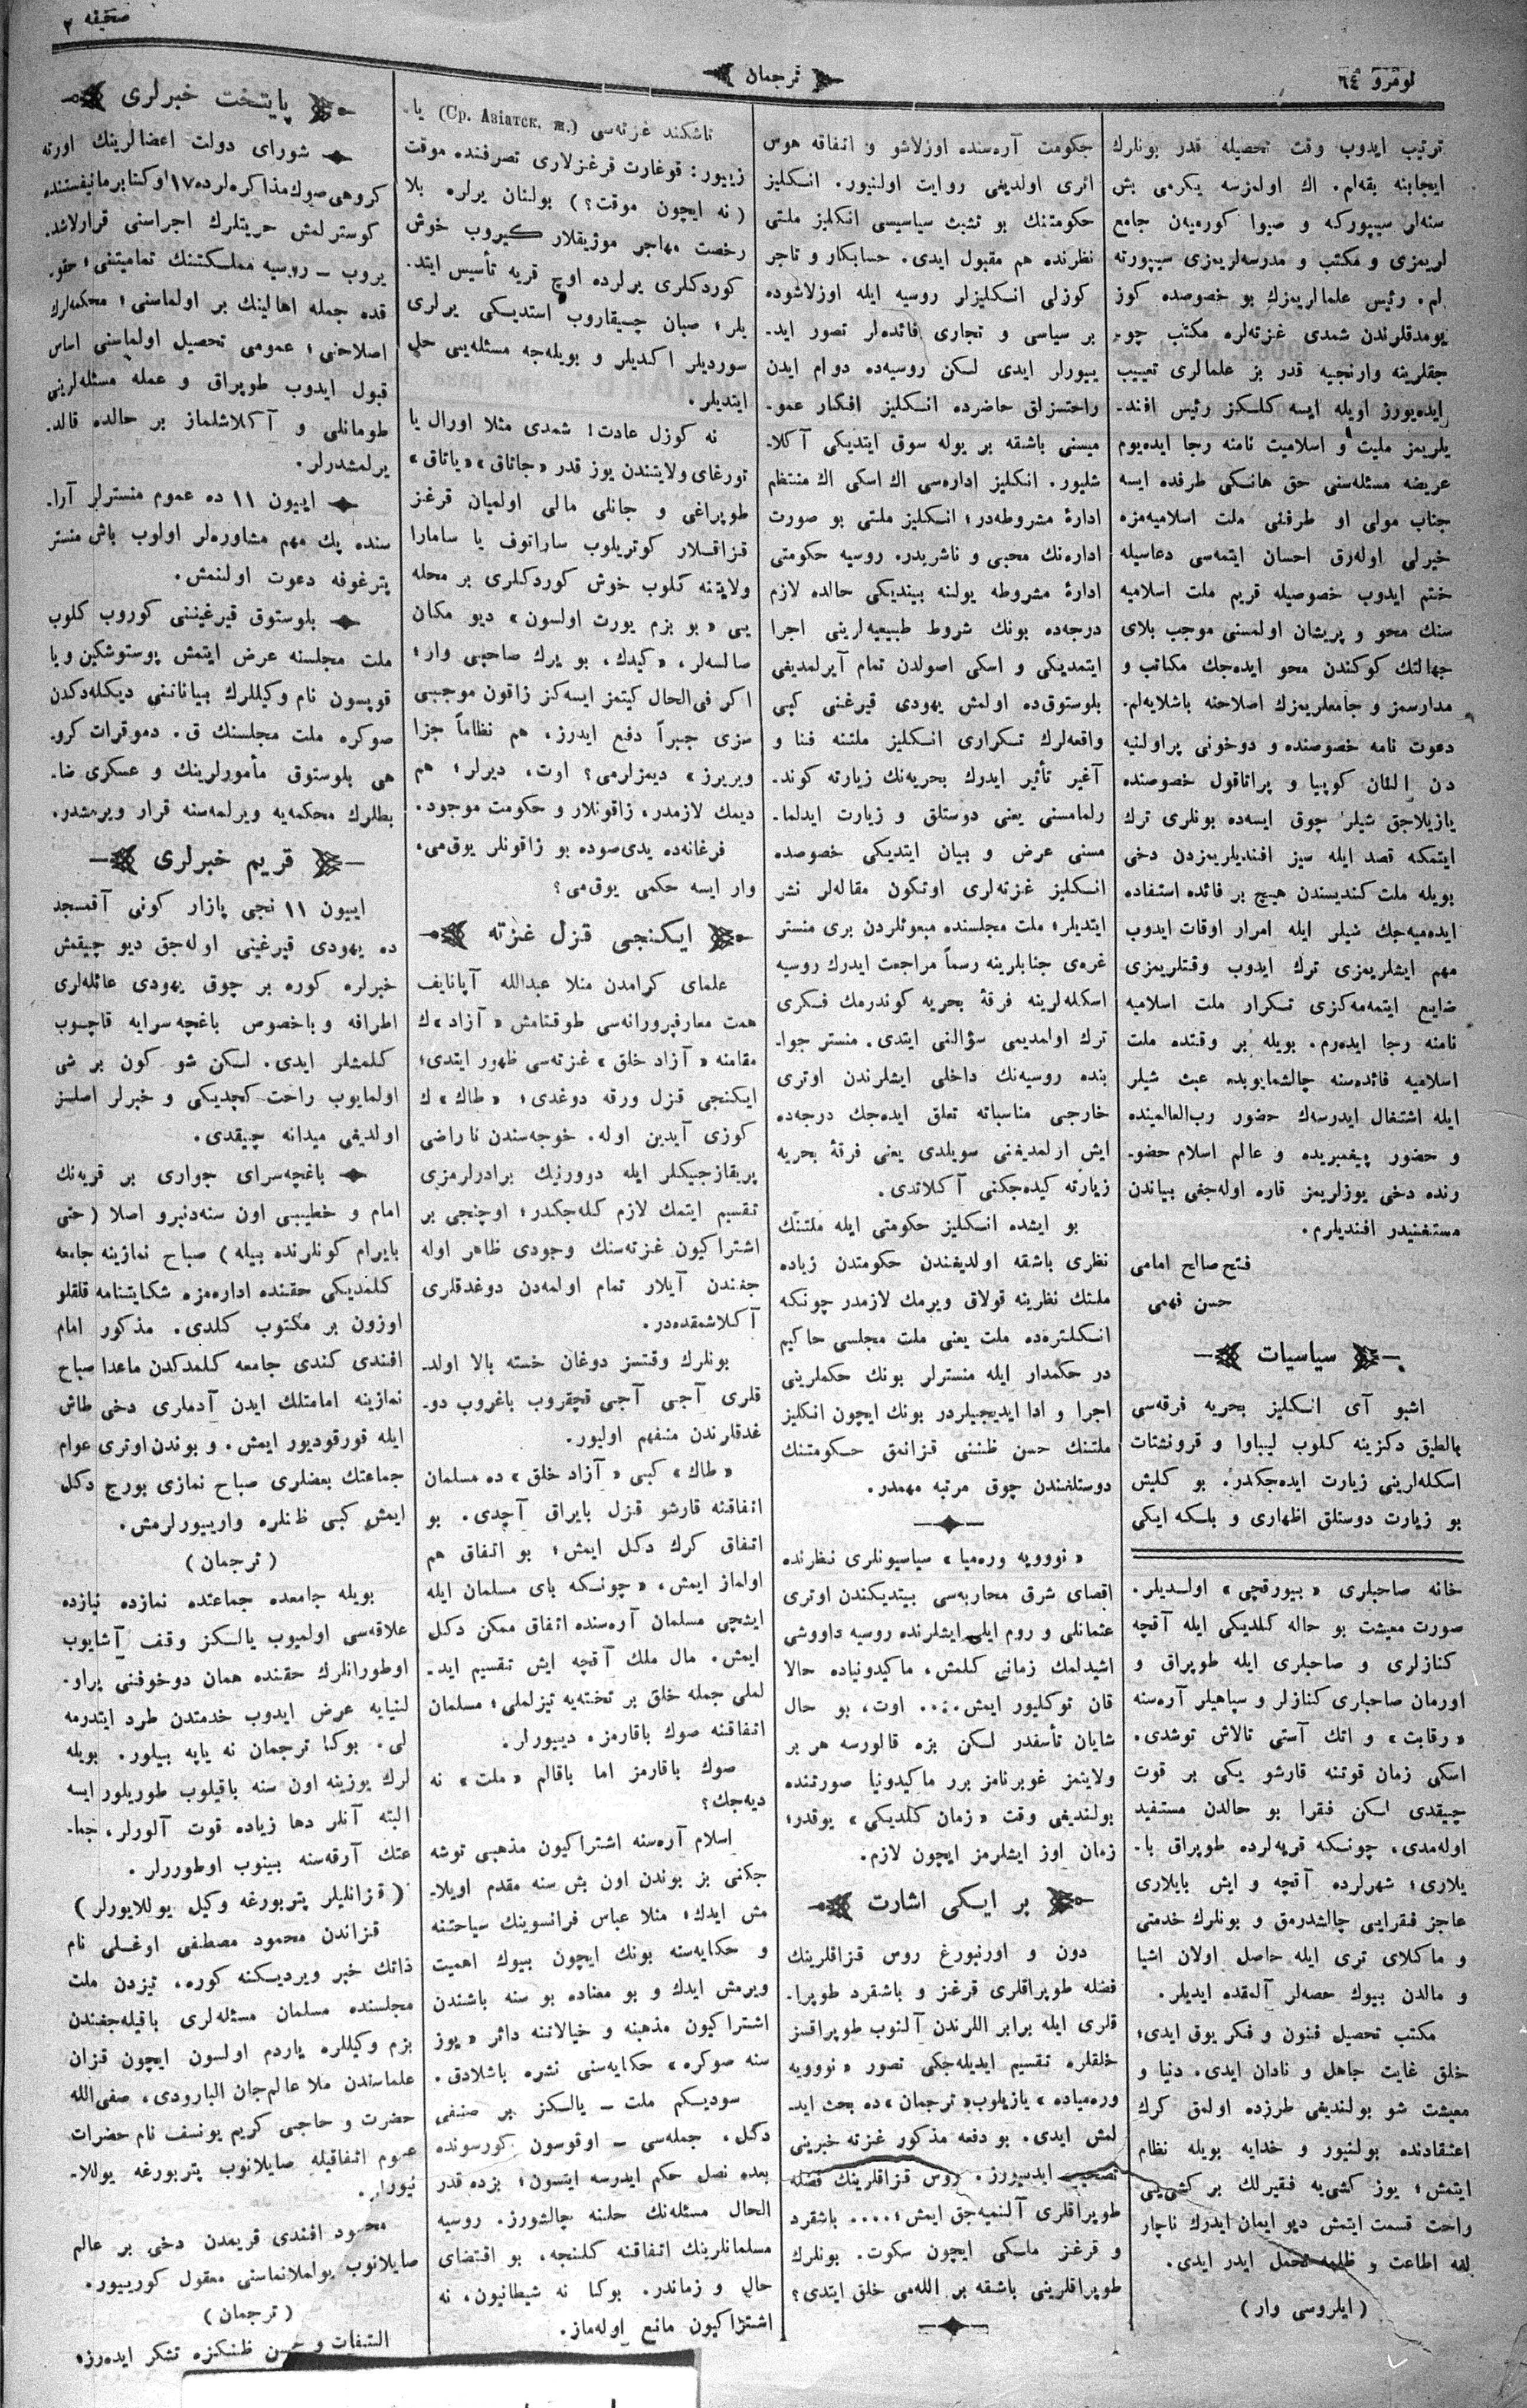 نومرو ٦٤
ترجمان
صحیفه ٢
ترتیب ایدوب وقت تحصیله قدر بونلرك
ایجابنه بقه‌لم. اك اولمزسه یکرمی بش
سنه‌لر سیپورکه و صیوا کورمیه‌ن جامع
لریمزی و مکتب و مدرسه‌لریمزی سیپورته
لم. رئیس علمالریمزك بو خصوصده کوز
یومدقلرندن شمدی غزته‌لره مکتب چو-
جقلرینه وارنجیه قدر بز علمالری تعییب
ایده‌یورز اویله ایسه کلکز رئیس افند-
یلریمز ملیت و اسلامیت نامنه رجا ایده‌یوم
عریضه مسئله‌سنی حق هانکی طرفده ایسه
جناب مولی او طرفنی ملت اسلامیه‌مزه
خیرلی اوله‌رق احسان ایتمه‌سی دعاسیله
ختم ایدوب خصوصیله قریم ملت اسلامیه
سنك محو و پریشان اولمسنی موجب بلای
جهالتك کوکندن محو ایده‌جك مکاتب و
مدارسمز و جامعلریمزك اصلاحنه باشلایه‌لم.
دعوت نامه خصوصنده و دوخونی پراولنیه
دن النان کوپیا و پراتاقول خصوصنده
یازیلاجق شیلر چوق ایسه‌ده بونلری ترك
ایتمکه قصد ایله سیز افندیلریمزدن دخی
بویله ملت کندیسندن هیچ بر فائده استفاده
ایده‌میه‌جك شیلر ایله امرار اوقات ایدوب
مهم ایشلریمزی ترك ایدوب وقتلریمزی
ضایع ایتمه‌مه‌کزی تکرار ملت اسلامیه
نامنه رجا ایده‌رم. بویله بر وقتده ملت
اسلامیه فائده‌سنه چالشمایوبده عبث شیلر
ایله اشتغال ایدرسه‌ك حضور رب‌العالمینده
و حضور پیغمبریده و عالم اسلام حضو-
رنده دخی یوزلریمز قاره اوله‌جغی بیاندن
مستغنیدر افندیلرم.
فتح صالح امامی
حسن فهمی
سیاسیات
اشبو آی انکلیز بحریه فرقه‌سی
بالطیق دکزینه کلوب لیباوا و قرونشتات
اسکله‌لرینی زیارت ایده‌جکدر. بو کلیش
بو زیارت دوستلق اظهاری و بلکه ایکی
خانه صاحبلری «بیورقچی» اولدیلر.
صورت معیشت بو حاله کلدیکی ایله آقچه
کنازلری و صاحبلری ایله طوپراق و
اورمان صاحباری کنازلر و سپاهیلر آره‌سنه
«رقابت» و اتك آستی تالاش توشدی.
اسکی زمان قوتنه قارشو یکی بر قوت
چیقدی لکن فقرا بو حالدن مستفید
اوله‌مدی، چونکه قریه‌لرده طوپراق با-
یلاری؛ شهرلرده آقچه و ایش بایلاری
عاجز فقرایی چالشدرمق و بونلرك خدمتی
و ماکلای تری ایله حاصل اولان اشیا
و مالدن بیوك حصه‌لر آلمقده ایدیلر.
مکتب تحصیل فنون و فکر یوق ایدی؛
خلق غایت جاهل و نادان ایدی. دنیا و
معیشت شو بولندیغی طرزده اولمق کرك
اعتقادنده بولنیور و خدایه بویله نظام
ایتمش؛ یوز کشی‌یه فقیرلك بر کشی‌یی
راحت قسمت ایتمش دیو ایمان ایدرك ناچار
لغه اطاعت و ظلمه تحمل ایدر ایدی.
(ایلروسی وار)
حکومت آره‌سنده اوزلاشو و اتفاقه هوس
اثری اولدیغی روایت اولنیور. انکلیز
حکومتنك بو تشبث سیاسیسی انکلیز ملتی
نظرنده هم مقبول ایدی. حسابکار و تاجر
کوزلی انکلیزلر روسیه ایله اوزلاشوده
بر سیاسی و تجاری فائده‌لر تصور اید-
ییورلر ایدی لکن روسیه‌ده دوام ایدن
راحتسزلق حاضرده انکلیز افکار عمو-
میسنی باشقه بر یوله سوق ایتدیکی آکلا-
شلیور. انکلیز اداره‌سی اك اسکی اك منتظم
ادارۀ مشروطه‌در؛ انکلیز ملتی بو صورت
اداره‌نك محبی و ناشریدر. روسیه حکومتی
ادارۀ مشروطه یولنه بیندیکی حالده لازم
درجه‌ده بونك شروط طبیعیه‌لرینی اجرا
ایتمدیکی و اسکی اصولدن تمام آیرلمدیغی
بلوستوق‌ده اولمش یهودی قیرغنی کبی
واقعه‌لرك تکراری انکلیز ملتنه فنا و
آغیر تأثیر ایدرك بحریه‌نك زیارته کوند-
رلمامسنی یعنی دوستلق و زیارت ایدلما-
مسنی عرض و بیان ایتدیکی خصوصده
انکلیز غزته‌لری اوتکون مقاله‌لر نشر
ایتدیلر؛ ملت مجلسنده مبعوثلردن بری منستر
غره‌ی جنابلرینه رسماً مراجعت ایدرك روسیه
اسکله‌لرینه فرقۀ بحریه کوندرمك فکری
ترك اولمدیمی سؤالنی ایتدی. منستر جوا-
بنده روسیه‌نك داخلی ایشلرندن اوتری
خارجی مناسباته تعلق ایده‌جك درجه‌ده
ایش ارلمدیغنی سویلدی یعنی فرقۀ بحریه
زیارته کیده‌جکنی آکلاتدی.
بو ایشده انکلیز حکومتی ایله ملتنك
نظری باشقه اولدیغندن حکومتدن زیاده
ملتك نظرینه قولاق ویرمك لازمدر چونکه
انکلتره‌ده ملت یعنی ملت مجلسی حاکیم
در حکمدار ایله منسترلر بونك حکملرینی
اجرا و ادا ایدیجیلردر بونك ایچون انکلیز
ملتنك حسن ظننی قزانمق حکومتنك
دوستلغندن چوق مرتبه مهمدر.
«نووویه وره‌میا» سیاسیونلری نظرنده
اقصای شرق محاربه‌سی بیتدیکندن اوتری
عثمانلی و روم ایلی ایشلرنده روسیه داووشی
اشیدلمك زمانی کلمش، ماکیدونیاده حالا
قان توکلیور ایمش.... اوت، بو حال
شایان تأسفدر لکن بزه قالورسه هر بر
ولایتمز غوبرنامز برر ماکیدونیا صورتنده
بولندیغی وقت «زمان کلدیکی» یوقدر؛
زمان اوز ایشلرمز ایچون لازم.
بر ایکی اشارت
دون و اورنبورغ روس قزاقلرینك
فضله طوپراقلری قرغز و باشقرد طوپرا-
قلری ایله برابر اللرندن آلنوب طوپراقسز
خلقلره تقسیم ایدیله‌جکی تصور «نووویه
وره‌میاده» یازیلوب «ترجمان»ده بحث اید-
لمش ایدی. بو دفعه مذکور غزته خبرینی
تصحیح ایدییورز. روس قزاقلرینك فضله
طوپراقلری آلنمیه‌جق ایمش؛.... باشقرد
و قرغز ماسکی ایچون سکوت. بونلرك
طوپراقلرینی باشقه بر الله‌می خلق ایتدی؟
تاشکند غزته‌سی (Ср. Азіатск. ж.) یا-
زییور: قوغارت قرغزلاری تصرفنده موقت
(نه ایچون موقت؟) بولنان یرلره بلا
رخصت مهاجر موژیقلار کیروب خوش
کوردکلری یرلرده اوچ قریه تأسیس ایتد.
یلر؛ صبان چیقاروب استدیکی یرلری
سوردیلر اکدیلر و بویله‌جه مسئله‌یی حل
ایتدیلر.
نه کوزل عادت! شمدی مثلا اورال یا
تورغای ولایتندن یوز قدر «جاتاق» «یاتاق»
طوپراغی و جانلی مالی اولمیان قرغز
قزاقلار کوتریلوب ساراتوف یا سامارا
ولایتنه کلوب خوش کوردکلری بر محله
یی «بو بزم یورت اولسون» دیو مکان
صالسه‌لر، «کیدك، بو یرك صاحبی وار؛
اکر فی‌الحال کیتمز ایسه‌کز زاقون موجبی
سزی جبراً دفع ایدرز، هم نظاماً جزا
ویریرز» دیمزلرمی؟ اوت، دیرلر؛ هم
دیمك لازمدر، زاقونلار و حکومت موجود.
فرغانه‌ده یدی‌صوده بو زاقونلر یوق‌می،
وار ایسه حکمی یوق‌می؟
ایکنجی قزل غزته
علمای کرامدن منلا عبدالله آپانایف
همت معارفپرورانه‌سی طوقتامش «آزاد»ك
مقامنه «آزاد خلق» غزته‌سی ظهور ایتدی؛
ایکنجی قزل ورقه دوغدی؛ «طاك»ك
کوزی آیدین اوله. خوجه‌سندن ناراضی
پریقازجیکلر ایله دوورنیك برادرلرمزی
تقسیم ایتمك لازم کله‌جکدر؛ اوچنجی بر
اشتراکیون غزته‌سنك وجودی ظاهر اوله
جغندن آیلار تمام اولمه‌دن دوغدقلری
آکلاشمقده‌در.
بونلرك وقتسز دوغان خسته بالا اولد-
قلری آجی آجی قچقروب باغروب دو-
غدقلرندن منفهم اولیور.
«طاك» کبی «آزاد خلق» ده مسلمان
اتفاقنه قارشو قزل بایراق آچدی. بو
اتفاق کرك دکل ایمش؛ بو اتفاق هم
اولماز ایمش، «چونکه بای مسلمان ایله
ایشچی مسلمان آره‌سنده اتفاق ممکن دکل
ایمش. مال ملك آقچه ایش تقسیم اید-
لملی جمله خلق بر تخته‌یه تیزلملی؛ مسلمان
اتفاقنه صوك باقارمز، دییورلر.
صوك باقارمز اما باقالم «ملت» نه
دیه‌جك؟
اسلام آره‌سنه اشتراکیون مذهبی توشه
جکنی بز بوندن اون بش سنه مقدم اویلا-
مش ایدك؛ مثلا عباس فرانسوینك سیاحتنه
و حکایه‌سنه بونك ایچون بیوك اهمیت
ویرمش ایدك و بو معناده بو سنه باشندن
اشتراکیون مذهبنه و خیالاتنه دائر «یوز
سنه صوکره» حکایه‌سنی نشره باشلادق.
سودیکم ملت - یالکز بر صنفی
دکل، جمله‌سی - اوقوسون کورسونده
بعده نصل حکم ایدرسه ایتسون؛ بزده قدر
الحال مسئله‌نك حلنه چالشورز. روسیه
مسلمانلرینك اتفاقنه کلنجه، بو اقتضای
حال و زماندر. بوکا نه شیطانیون، نه
اشتراکیون مانع اوله‌ماز.
پایتخت خبرلری
شورای دولت اعضالرینك اورته
کروهی صوك مذاکره‌لرده ١٧ اوکتابر مانیفستنده
کوسترلمش حریتلرك اجراسنی قرارلاشد.
یروب - روسیه مملکتنك تمامیتنی؛ حقو-
قده جمله اهالینك بر اولماسنی؛ محکمه‌لرك
اصلاحنی؛ عمومی تحصیل اولماسنی اساس
قبول ایدوب طوپراق و عمله مسئله‌لرینی
طومانلی و آکلاشلماز بر حالده قالد.
یرلمشدرلر.
اییون ١١ ده عموم منسترلر آرا.
سنده پك مهم مشاوره‌لر اولوب باش منستر
پترغوفه دعوت اولنمش.
بلوستوق قیرغیننی کوروب کلوب
ملت مجلسنه عرض ایتمش پوستوشکین و یا
قوبسون نام وکیللرك بیاناتنی دیکله‌دکدن
صوکره ملت مجلسنك ق. دموقرات کرو.
هی بلوستوق مأمورلرینك و عسکری ضا-
بطلرك محکمه‌یه ویرلمه‌سنه قرار ویرمشدر.
قریم خبرلری
اییون ١١ نجی پازار کونی آقمسجد
ده یهودی قیرغینی اوله‌جق دیو چیقمش
خبرلره کوره بر چوق یهودی عائله‌لری
اطرافه و باخصوص باغچه‌سرایه قاچوب
کلمشلر ایدی. لکن شو کون بر شی
اولمایوب راحت کچدیکی و خبرلر اصلسز
اولدیغی میدانه چیقدی.
باغچه‌سرای جواری بر قریه‌نك
امام و خطیبی اون سنه‌دنبرو اصلا (حتی
بایرام کونلرنده بیله) صباح نمازینه جامعه
کلمدیکی حقنده اداره‌مزه شکایتنامه قلقلو
اوزون بر مکتوب کلدی. مذکور امام
افندی کندی جامعه کلمدکدن ماعدا صباح
نمازینه امامتلك ایدن آدملری دخی طاش
ایله قورقودیور ایمش. و بوندن اوتری عوام
جماعتك بعضلری صباح نمازی بورج دکل
ایمش کبی ظنلره وارییورلرمش.
(ترجمان)
بویله جامعده جماعتده نمازده نیازده
علاقه‌سی اولمیوب یالکز وقف آشایوب
اوطورانلرك حقنده همان دوخوفنی پراو.
لنیایه عرض ایدوب خدمتدن طرد ایتدرمه
لی. بوکا ترجمان نه یاپه بیلور. بویله
لرك یوزینه اون سنه باقیلوب طوریلور ایسه
البته آنلر دها زیاده قوت آلورلر، جما-
عتك آرقه‌سنه بینوب اوطوررلر.
(قزانلیلر پتربورغه وکیل یوللایورلر)
قزاندن محمود مصطفی اوغلی نام
ذاتك خبر ویردیکنه کوره، تیزدن ملت
مجلسنده مسلمان مسئله‌لری باقیله‌جغندن
بزم وکیللره یاردم اولسون ایچون قزان
علماسندن ملا عالم‌جان البارودی، صفی‌الله
حضرت و حاجی کریم یونسف نام حضرات
عموم اتفاقیله صایلانوب پتربورغه یوللا-
نیور.
محمود افندی قریمدن دخی بر عالم
صایلانوب یوللانماسنی معقول کورییور.
(ترجمان)
التفات و حسن ظنکزه تشکر ایده‌رز؛